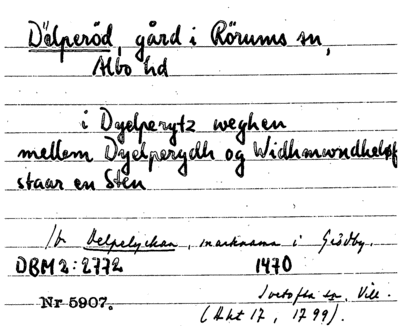 Dälperöd, gård i Rörums sn,
Albo hd
i Dyelperytz weghen
mellem Dyelperydh og Widhmwndheløf
staar en Sten
Jr Delpelyckan, marknamn i Gisöby.
DBM 2:2772 1470
Nr 5907. Tvetofta sn. Vill.
(Akt 17, 1799).